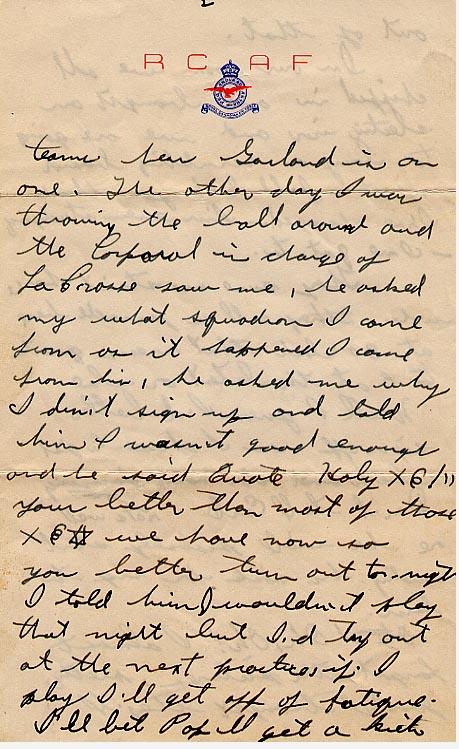 2
R C A F
teams here Garland is on
one. The other day I was
throwing the ball around and
the Corporal in charge of
La Crosse saw me, he asked
my what squadron I come
from as it happened I came
from his, he asked me why
I din't sign up and told
him I wasn't good enough
and he said Quote Holy X@/!!
your better than most of those
X@# we have now so
you better turn out to-night
I told him I wouldn't play
that night but I'd try out
at the next practice, if I
play I'll get off of fatigue.
I'll bet Pop ll get a kick